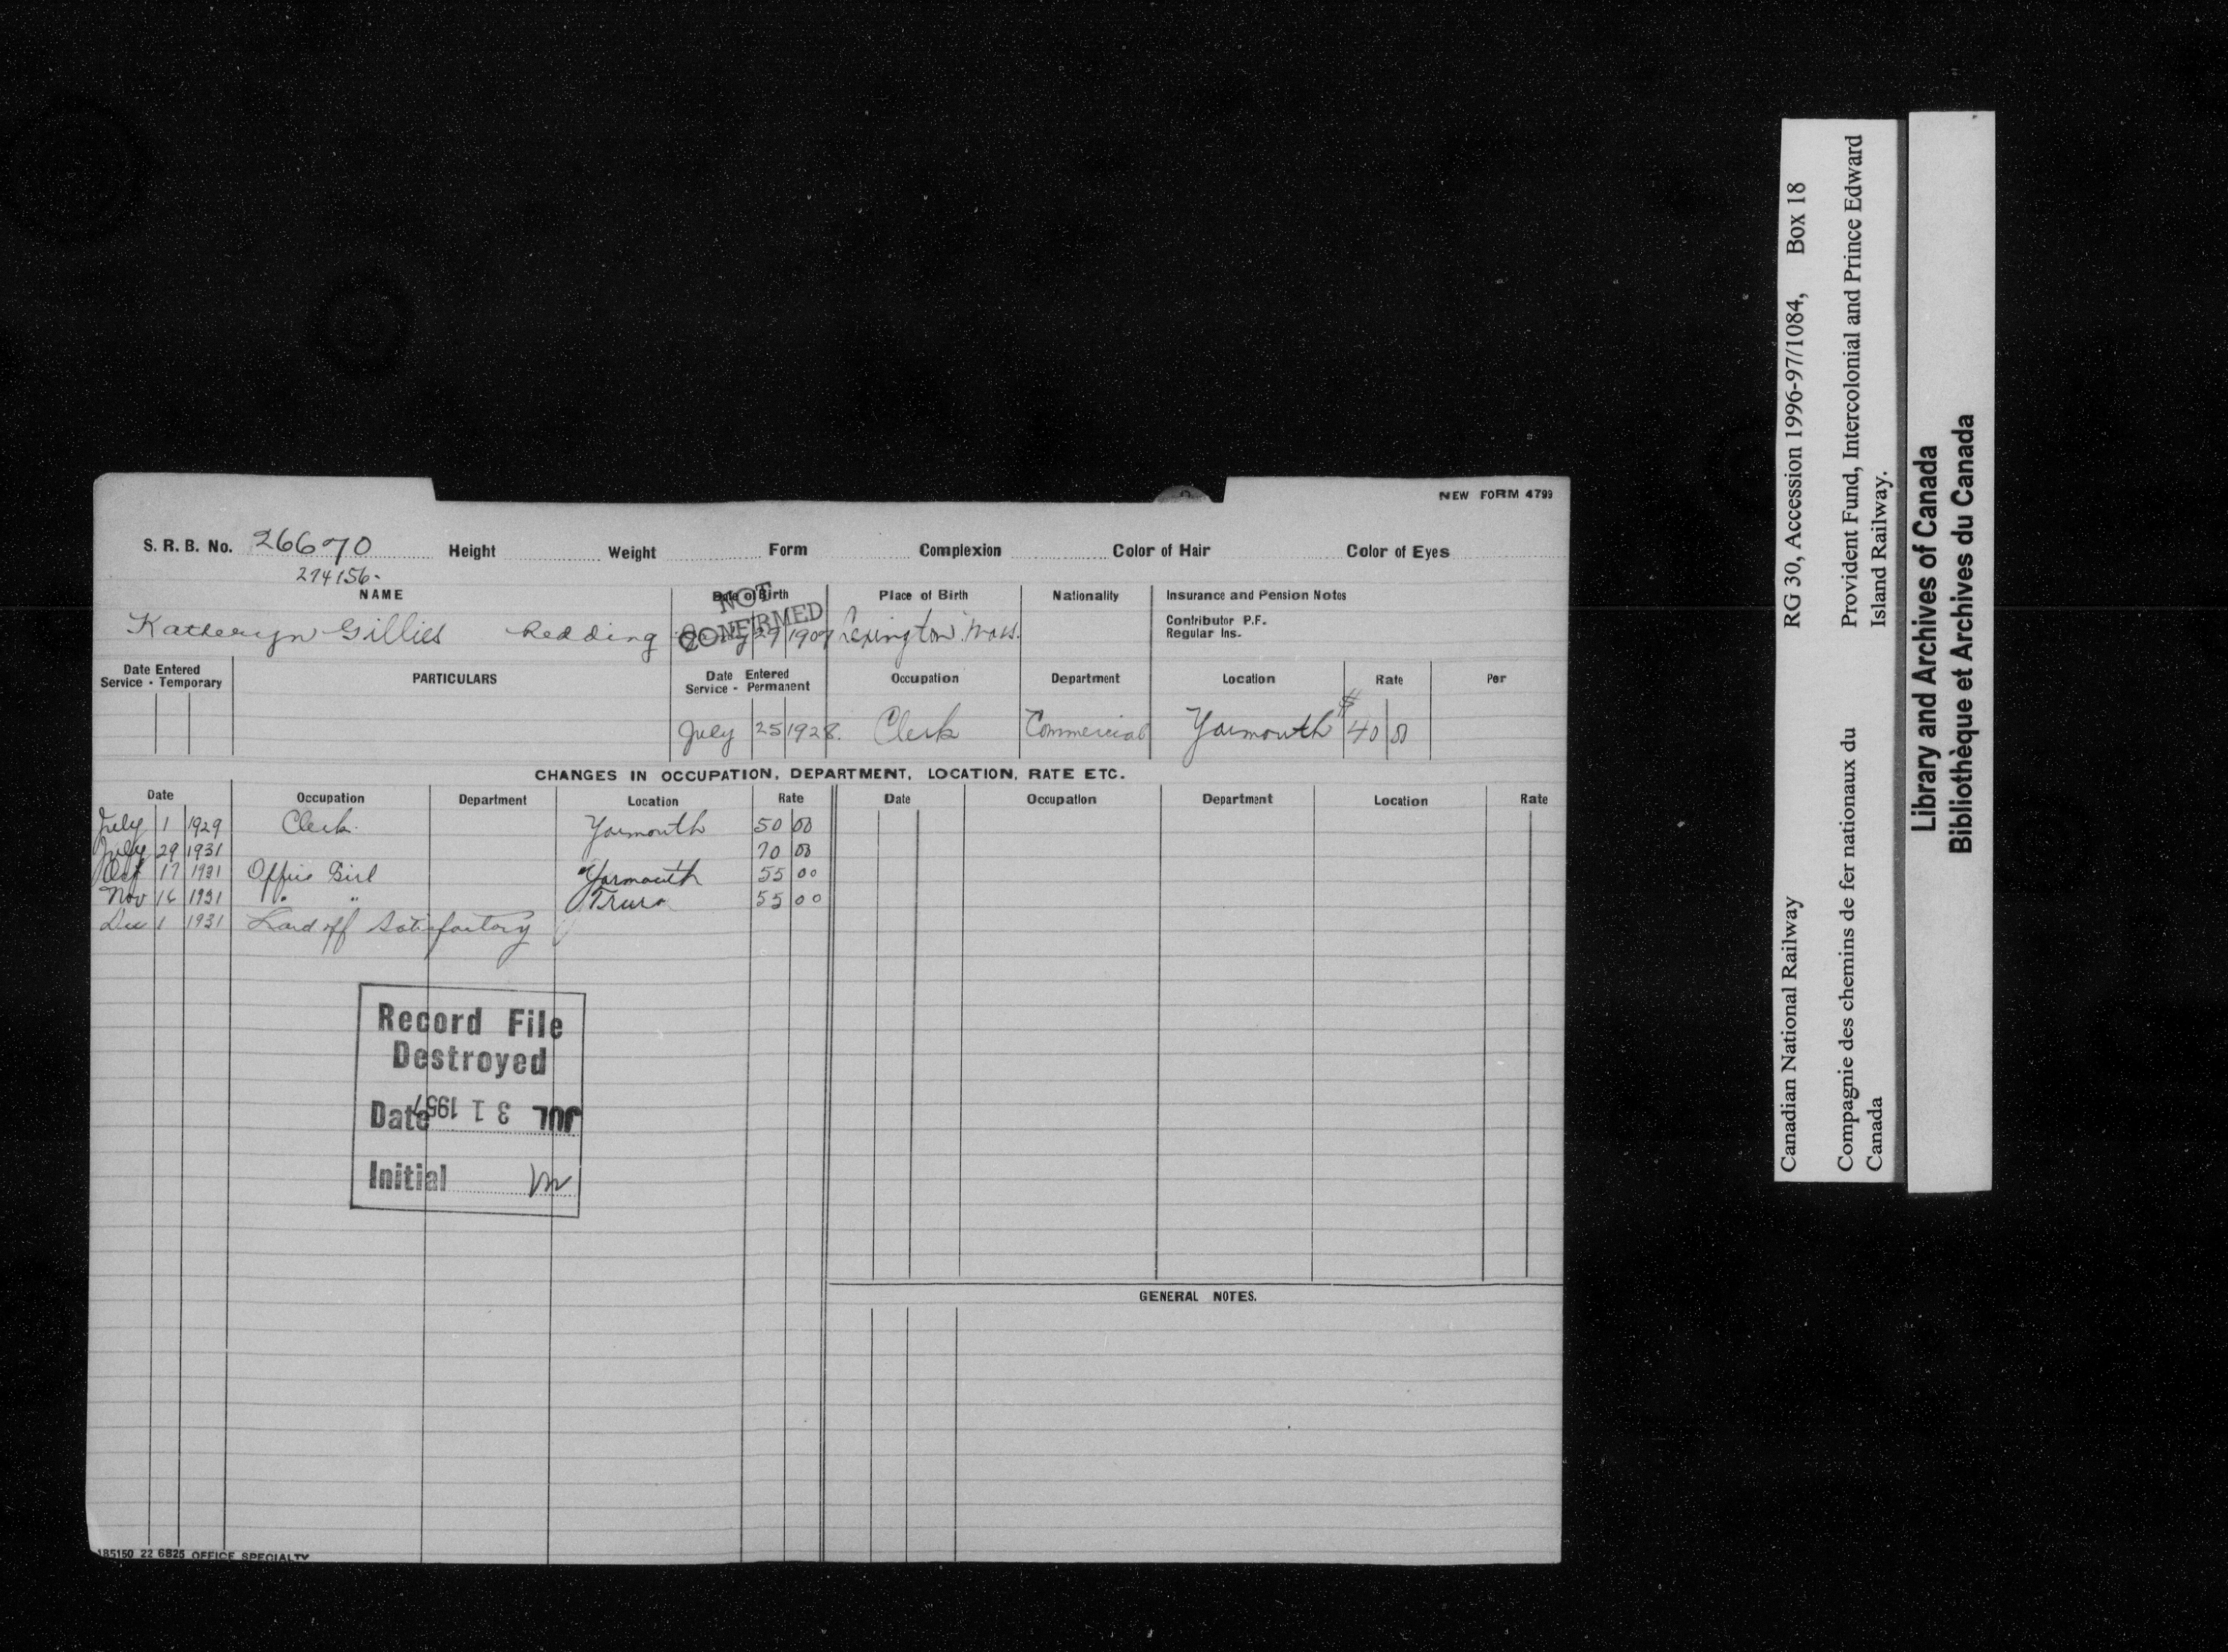 NEW FORM 4799
S. R. B. No. 26670 Height Weight Form Complexion Color of Hair Color of Eyes
274156-
NAME Date of Birth Place of Birth Nationality Insurance and Pension Notes
NOT CONFIRMED
Contributor P.F.
Regular Ins.
Katheryn Gillies Redding 27 1907 Lexington Mass.
Date Entered Service - Temporary PARTICULARS Date Entered Service - Permanent Occupation Department Location Rate Per
July 25 1928. Clerk Commercial Yarmouth $ 40 00
CHANGES IN OCCUPATION, DEPARTMENT, LOCATION, RATE ETC.
Date Occupation Department Location Rate Date Occupation Department Location Rate
July 1 1929 Clerk. Yarmouth 50 00
July 29 1931 70 00
Oct 17 1931 Office Girl Yarmouth 55 00
Nov 16 1931 " " Truro 55 00
Dec 1 1931 Laid off Satisfactory
Record File
Destroyed
Date JUL 31 1957
Initial
GENERAL NOTES.
185150 22 6825 OFFICE SPECIALTY
Canadian National Railway RG 30, Accession 1996-97/1084, Box 18
Compagnie des chemins de fer nationaux du
Canada
Provident Fund, Intercolonial and Prince Edward
Island Railway.
Library and Archives of Canada
Bibliothèque et Archives du Canada